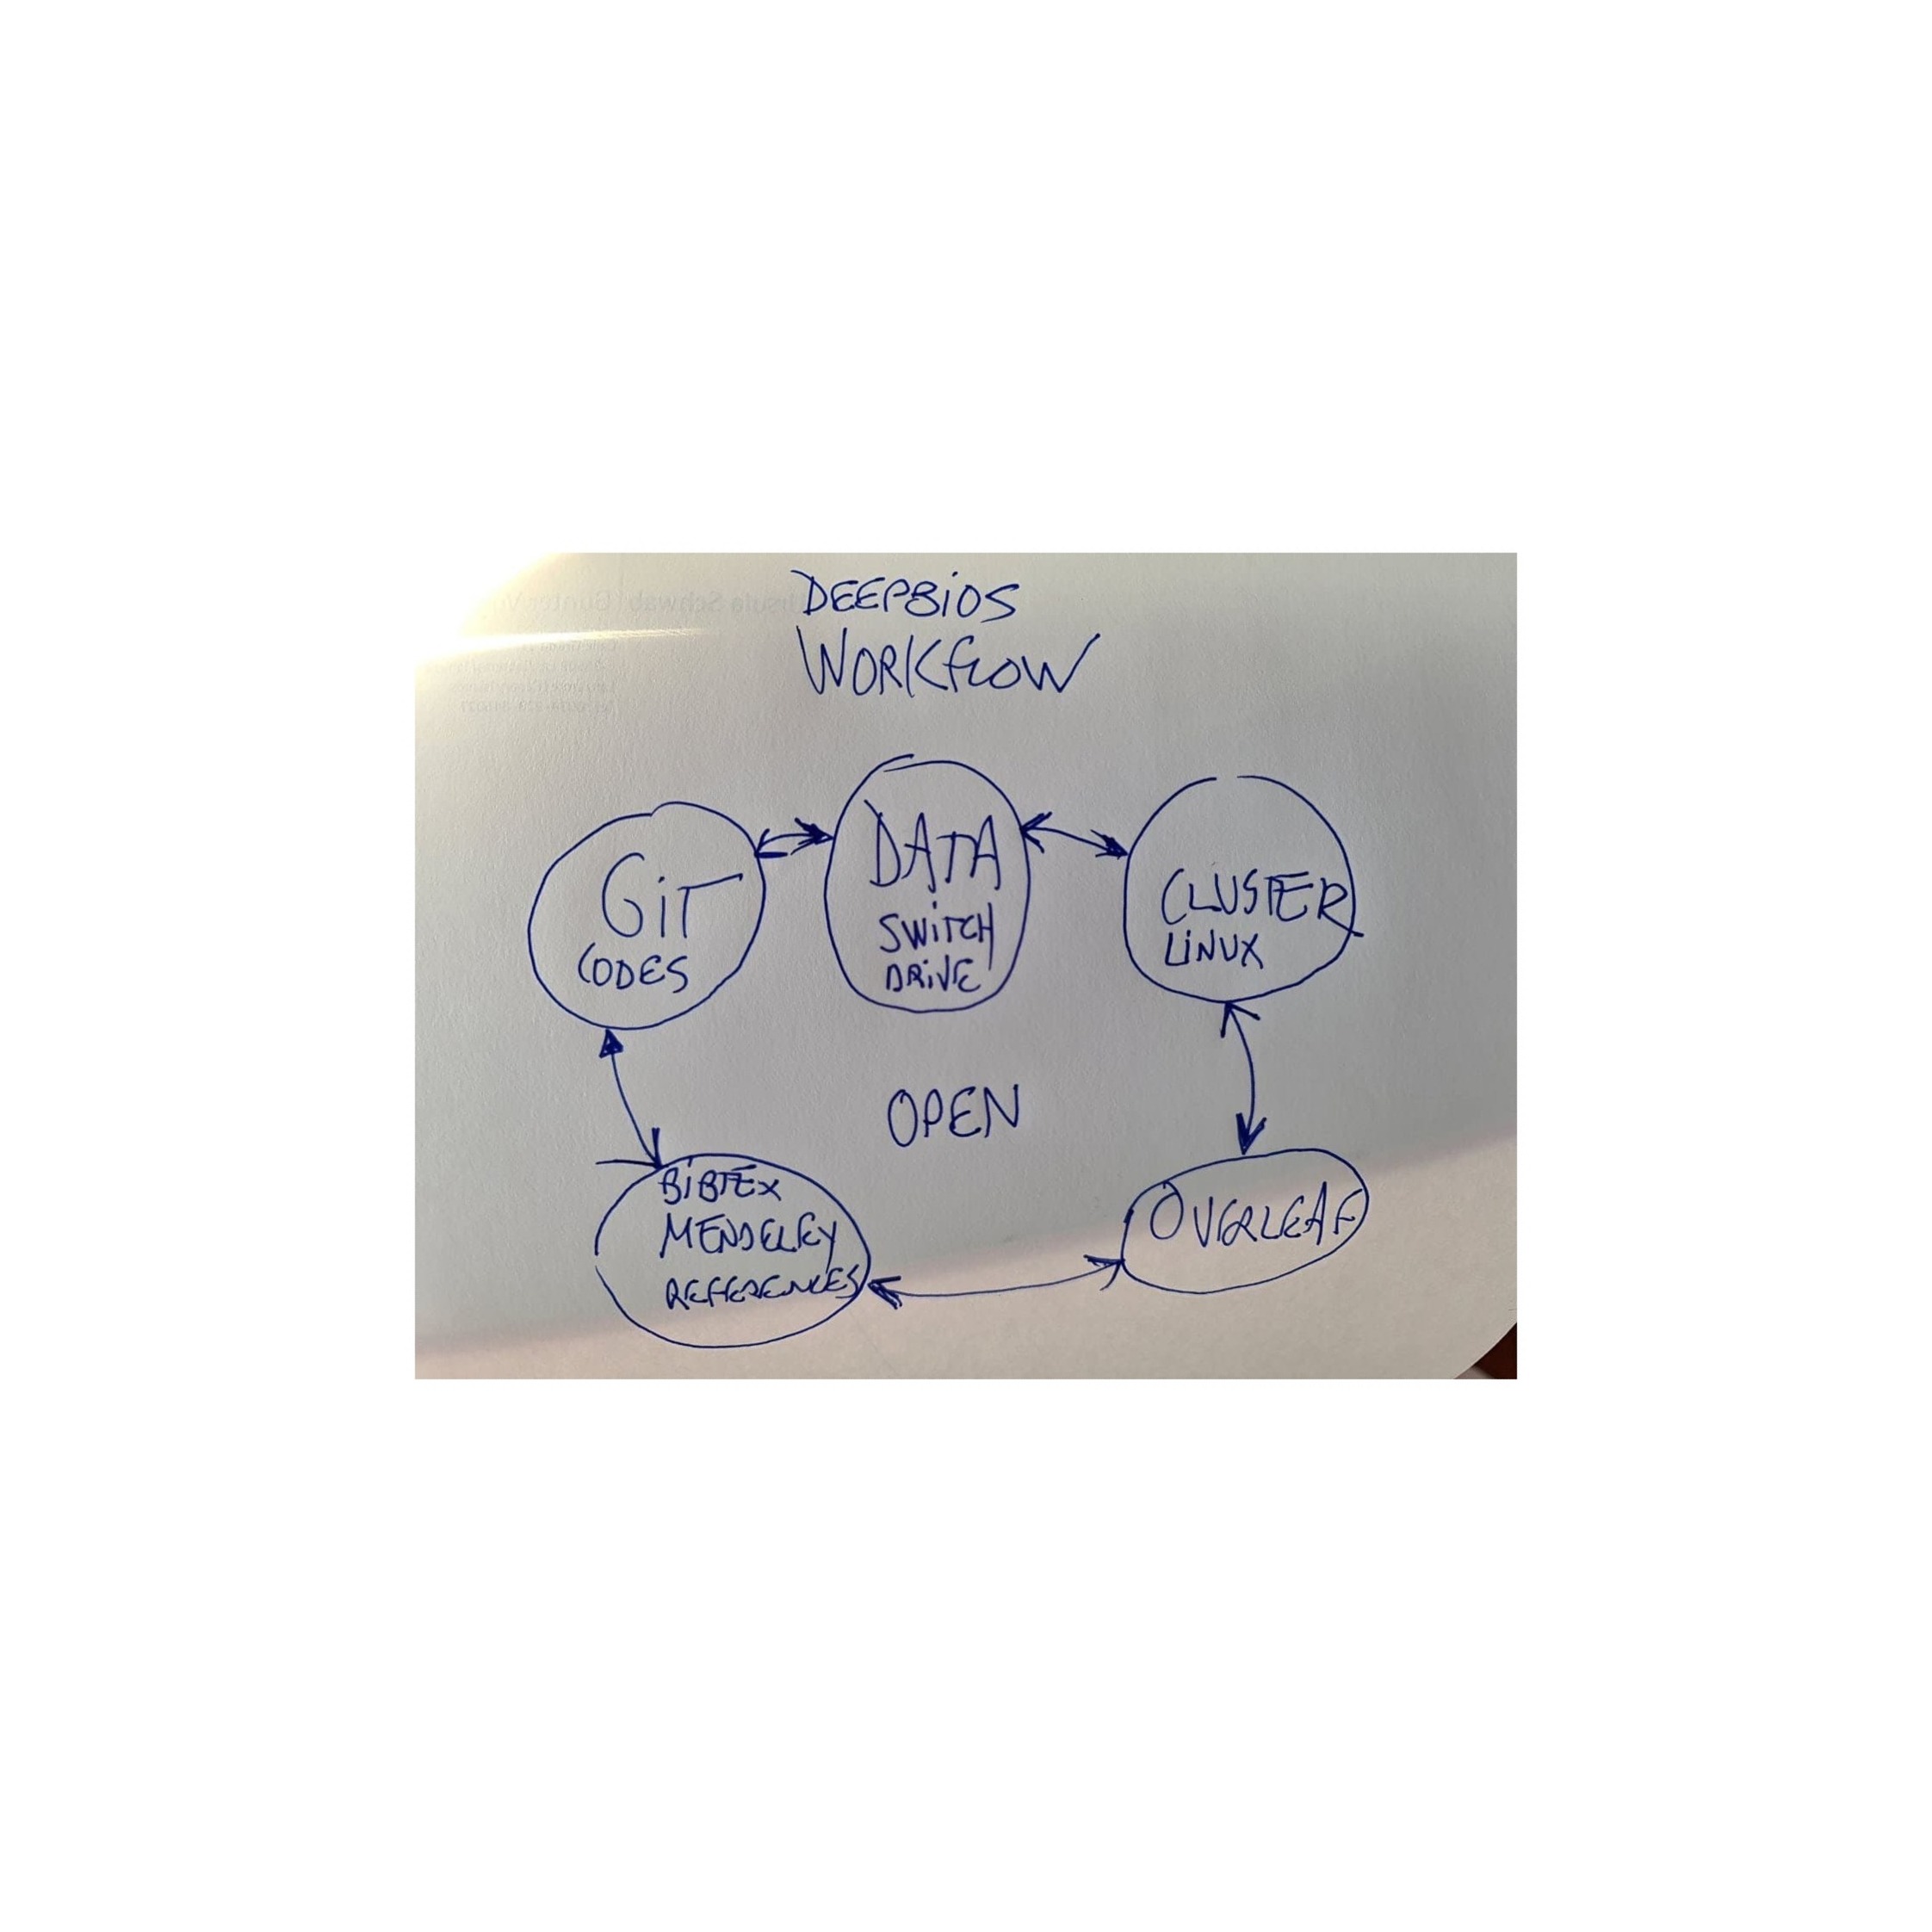 DEEPBiOS
WORKFLOW
GiT
CODES
DATA
SWiTCH
DRiVE
CLUSTER
LiNUX
OPEN
BiBTEX
MENDELEY
REFERENCES
OVERLEAF